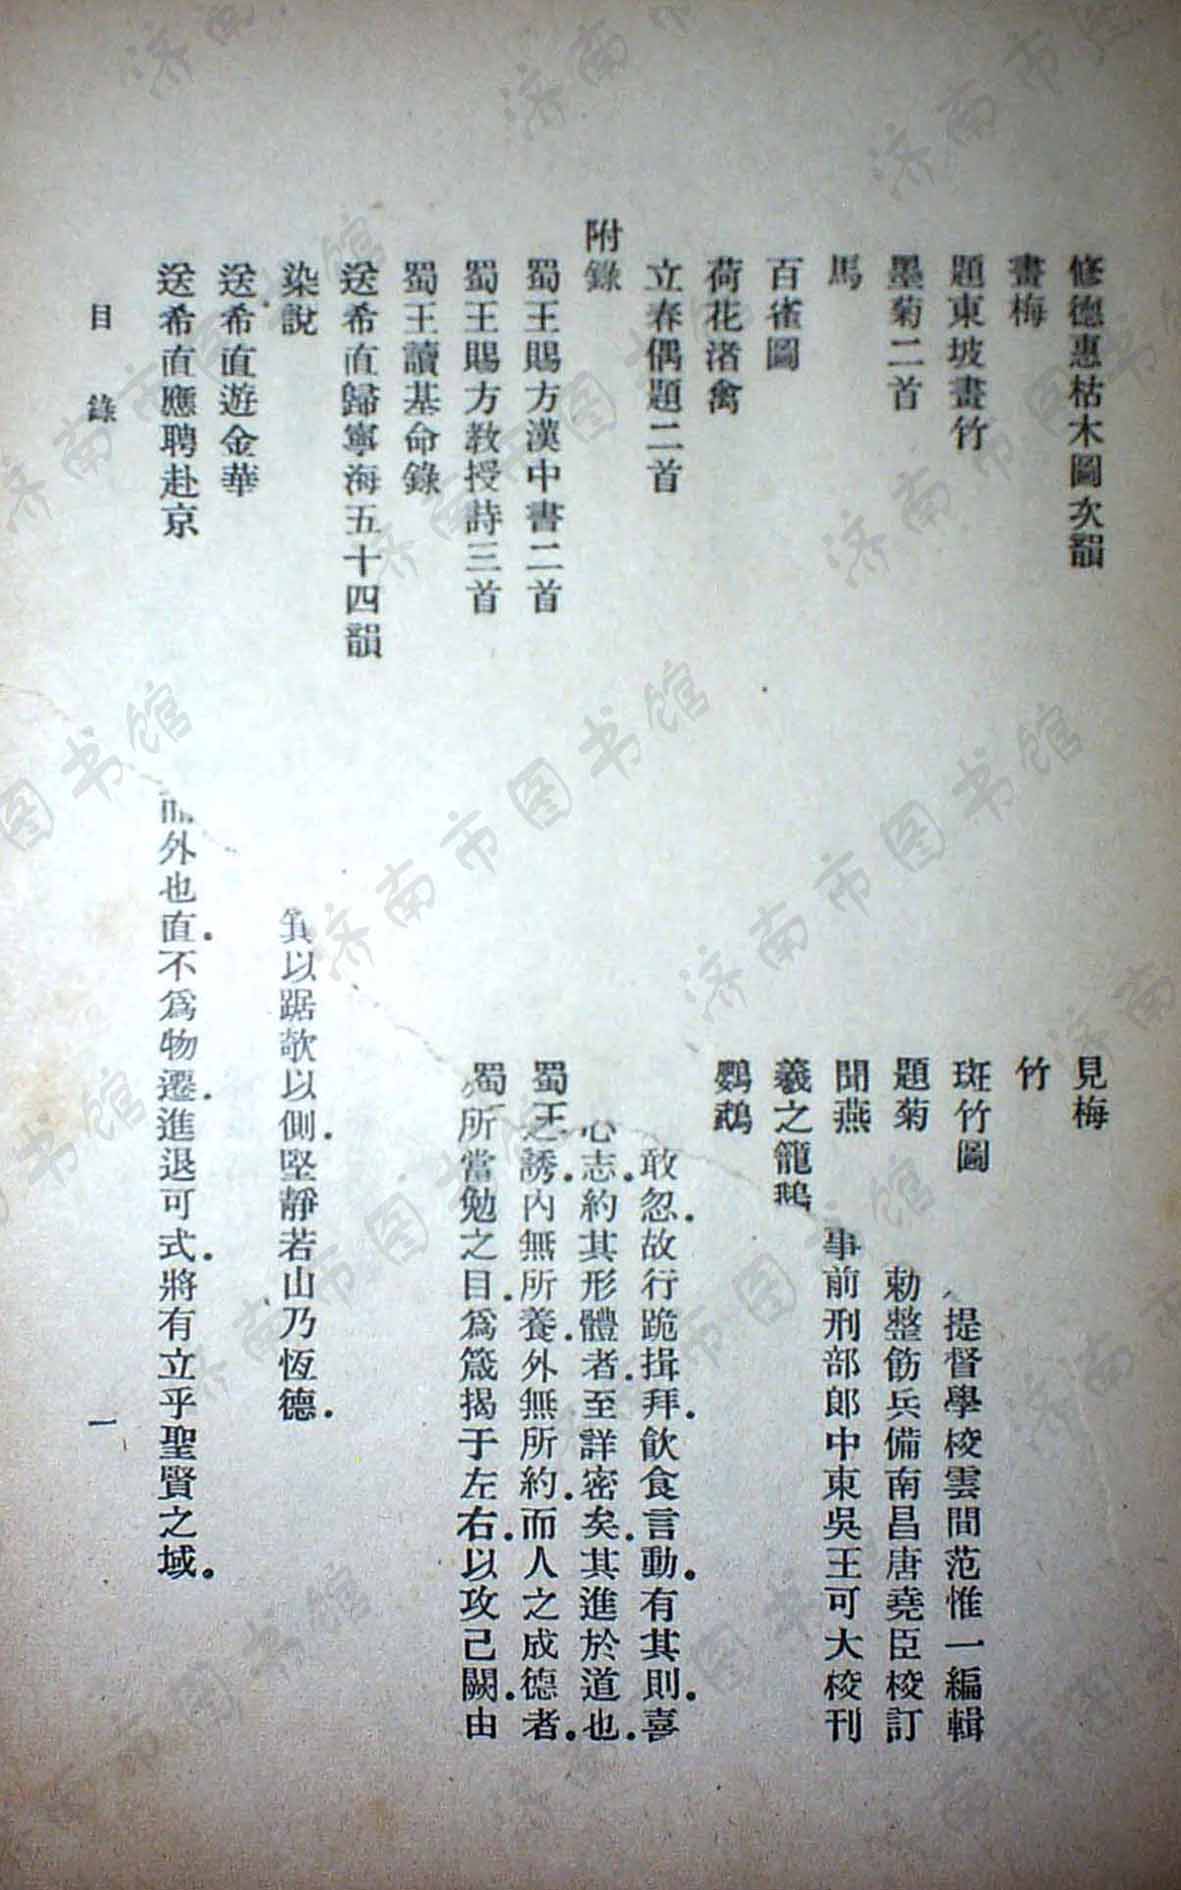 修德惠枯木圖次韻
畫梅
題東坡畫竹
墨菊二首
馬
百雀圖
荷花渚禽
立春偶題二首
附錄
蜀王賜方漢中書二首
蜀王賜方教授詩三首
蜀王讀基命錄
送希直歸寧海五十四韻
染說
送希直遊金華
送希直應聘赴京
見梅
竹
斑竹圖
題菊
聞燕
羲之籠鵝
鸚鵡
提督學校雲間范惟一編輯
勅整飭兵備南昌唐堯臣校訂
事前刑部郎中東吳王可大校刊
敢忽故行跪揖拜飲食言動有其則喜
心志約其形體者至詳密矣其進於道也
蜀王之誘內無所養外無所約而人之成德者
蜀所當勉之目爲箴揭于左右以攻己闕由
箕以踞欹以側堅靜若山乃恆德
外也直不爲物遷進退可式將有立乎聖賢之域
目錄
一
济南市图书馆